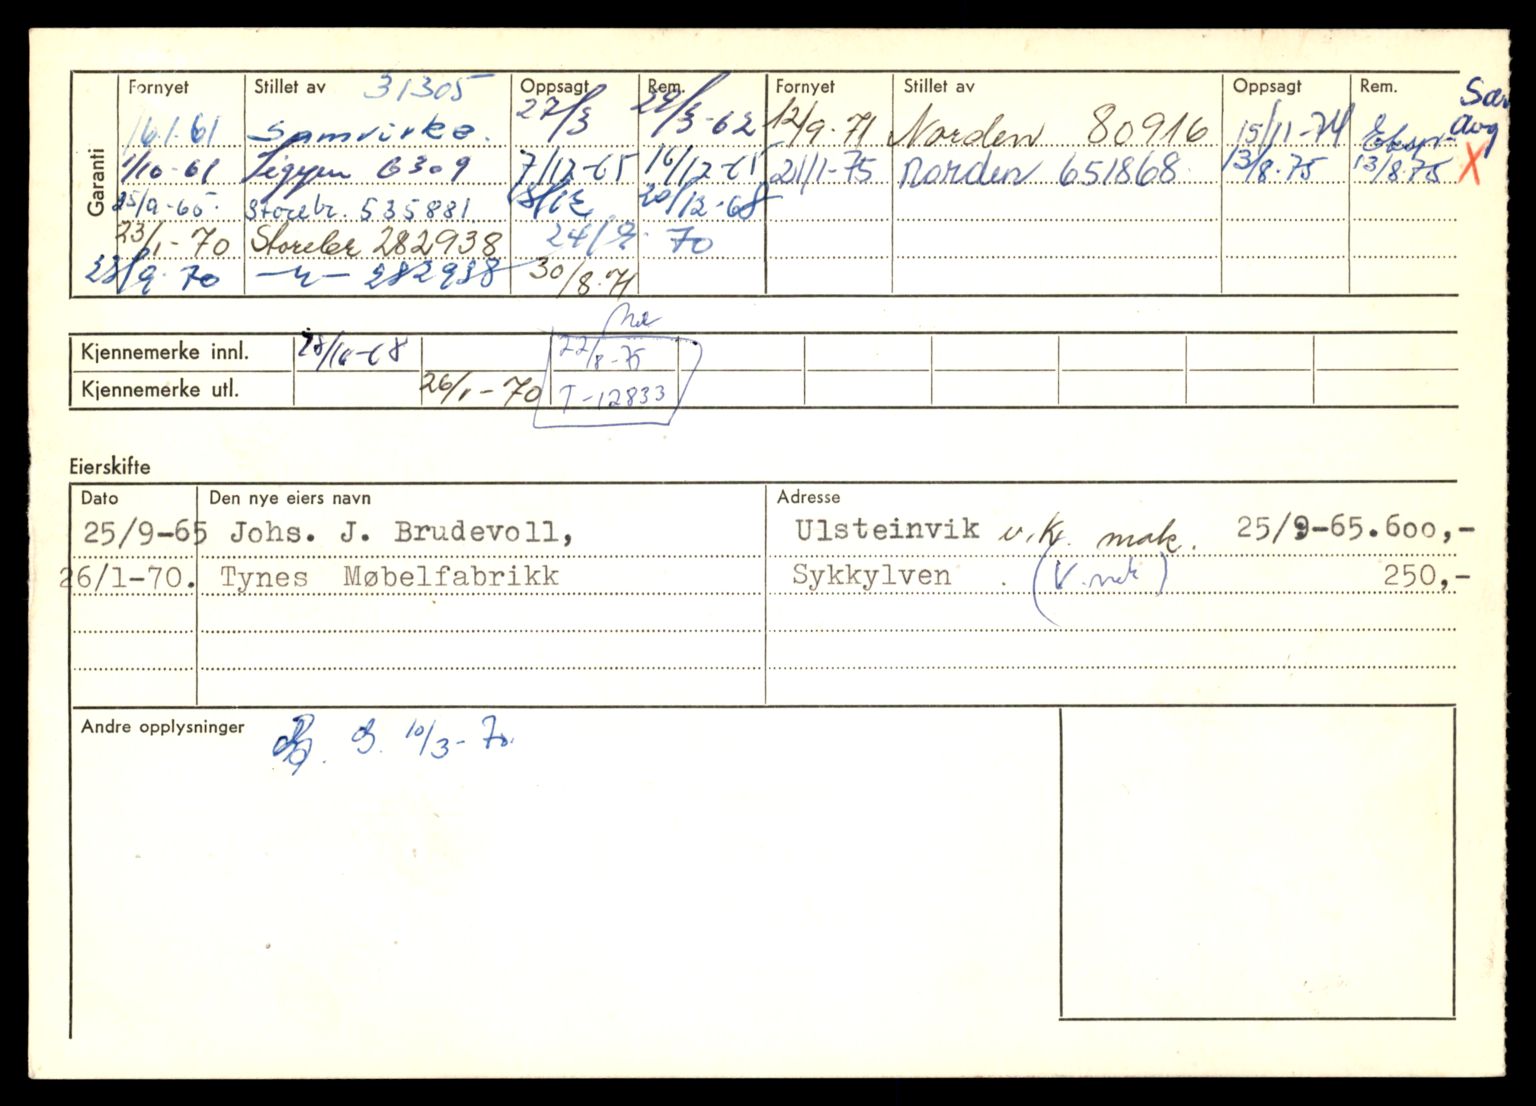 Fornyet Stillet av 31305 Oppsagt Rem. Fornyet Stillet av Oppsagt Rem. Sær avg
Garanti
16.1.61 Samvirke. 27/3 29/3-62 12/9-71 Norden 80916 15/11-74 Ekspr.
1/10-61 6309 7/12-65 16/12-65 21/1-75 Norden 651868 13/8-75 13/8-75 X
25/9-65. Storebr. 535881 20/12-68
23/1-70 Storebr 282938 24/9-70
23/9-70 —"— 282938 30/8-71
Kjennemerke innl. 28/10-68 22/8-75
Kjennemerke utl. 26/1-70 T-12833
Eierskifte
Dato Den nye eiers navn Adresse
25/9-65 Johs. J. Brudevoll, Ulsteinvik v.kj. mak. 25/9-65.600,-
26/1-70. Tynes Møbelfabrikk Sykkylven . (V.mak) 250,-
Andre opplysninger 10/3-70.